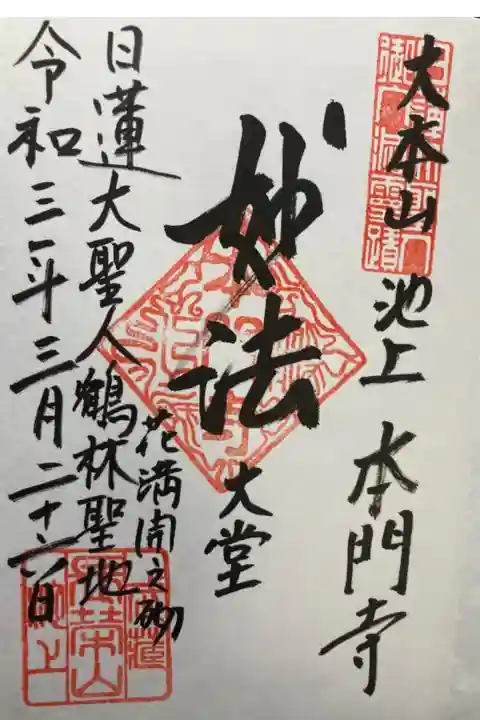 大本山 池上 本門寺
妙法
大堂
花満開之砌
日蓮大聖人鶴林聖地
令和三年三月二十六日